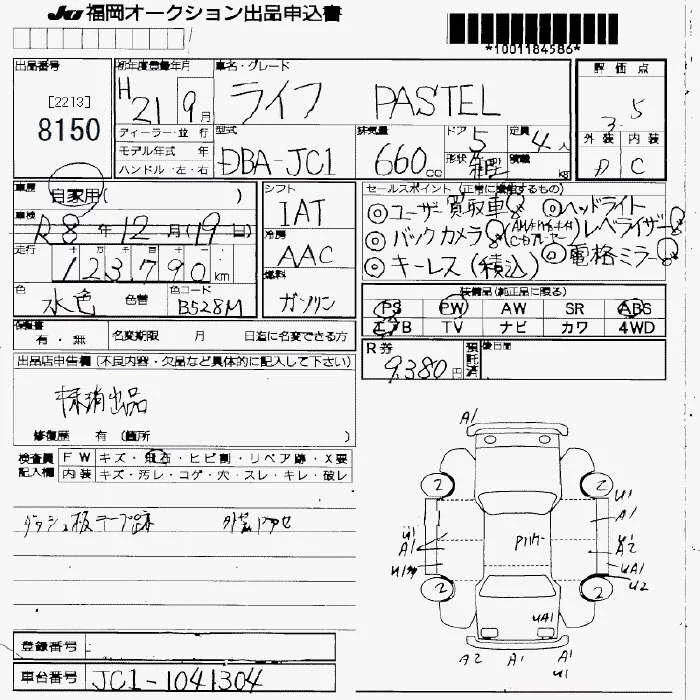 JU 福岡オークション出品申込書
*1001184586*
出品番号
[2213]
8150
初年度登録年月
H 21 9月
ディーラー・並行
モデル年式 年
ハンドル・左・右
車名・グレード
ライフ PASTEL
型式
DBA-JC1
排気量
660cc
ドア
5
形状
定員
4人
積載
kg
評価点
3.5
外装 内装
D C
車歴
自家用( )
車検
R8年12月(19日)
走行
123790km
色
水色
色替
色コード
B528M
シフト
IAT
冷房
AAC
燃料
ガソリン
セールスポイント(正常に機能するもの)
◎ユーザー買取車 ◎ヘッドライト
◎バックカメラ レベライザー
◎キーレス(積込) ◎電格ミラー
装備品(純正品に限る)
PS PW AW SR ABS
エアB TV ナビ カワ 4WD
保証書
有・無
名変期限 月 日迄に名変できる方
R券
9380円
預託済
後日間
出品店申告欄(不良内容・欠品など具体的に記入して下さい)
抹消出品
修復歴 有(箇所 )
検査員
記入欄
FW キズ・飛石・ヒビ割・リペア跡・X要
内装 キズ・汚レ・コゲ・穴・スレ・キレ・破レ
ダッシュ板テープ跡
登録番号
車台番号
JC1-1041304
A1
2
2
U1
A1
U1
A1
U1
A2
UA1
U2
2
2
UA1
A2
A1
A1
U1